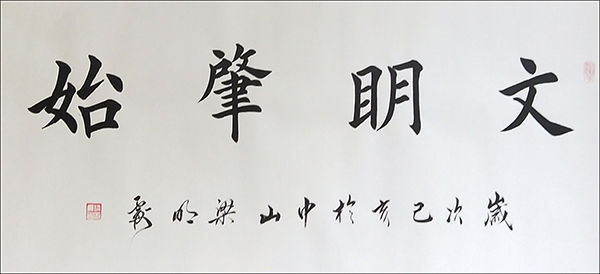 文眀肇始
歲次己亥於中山梁明